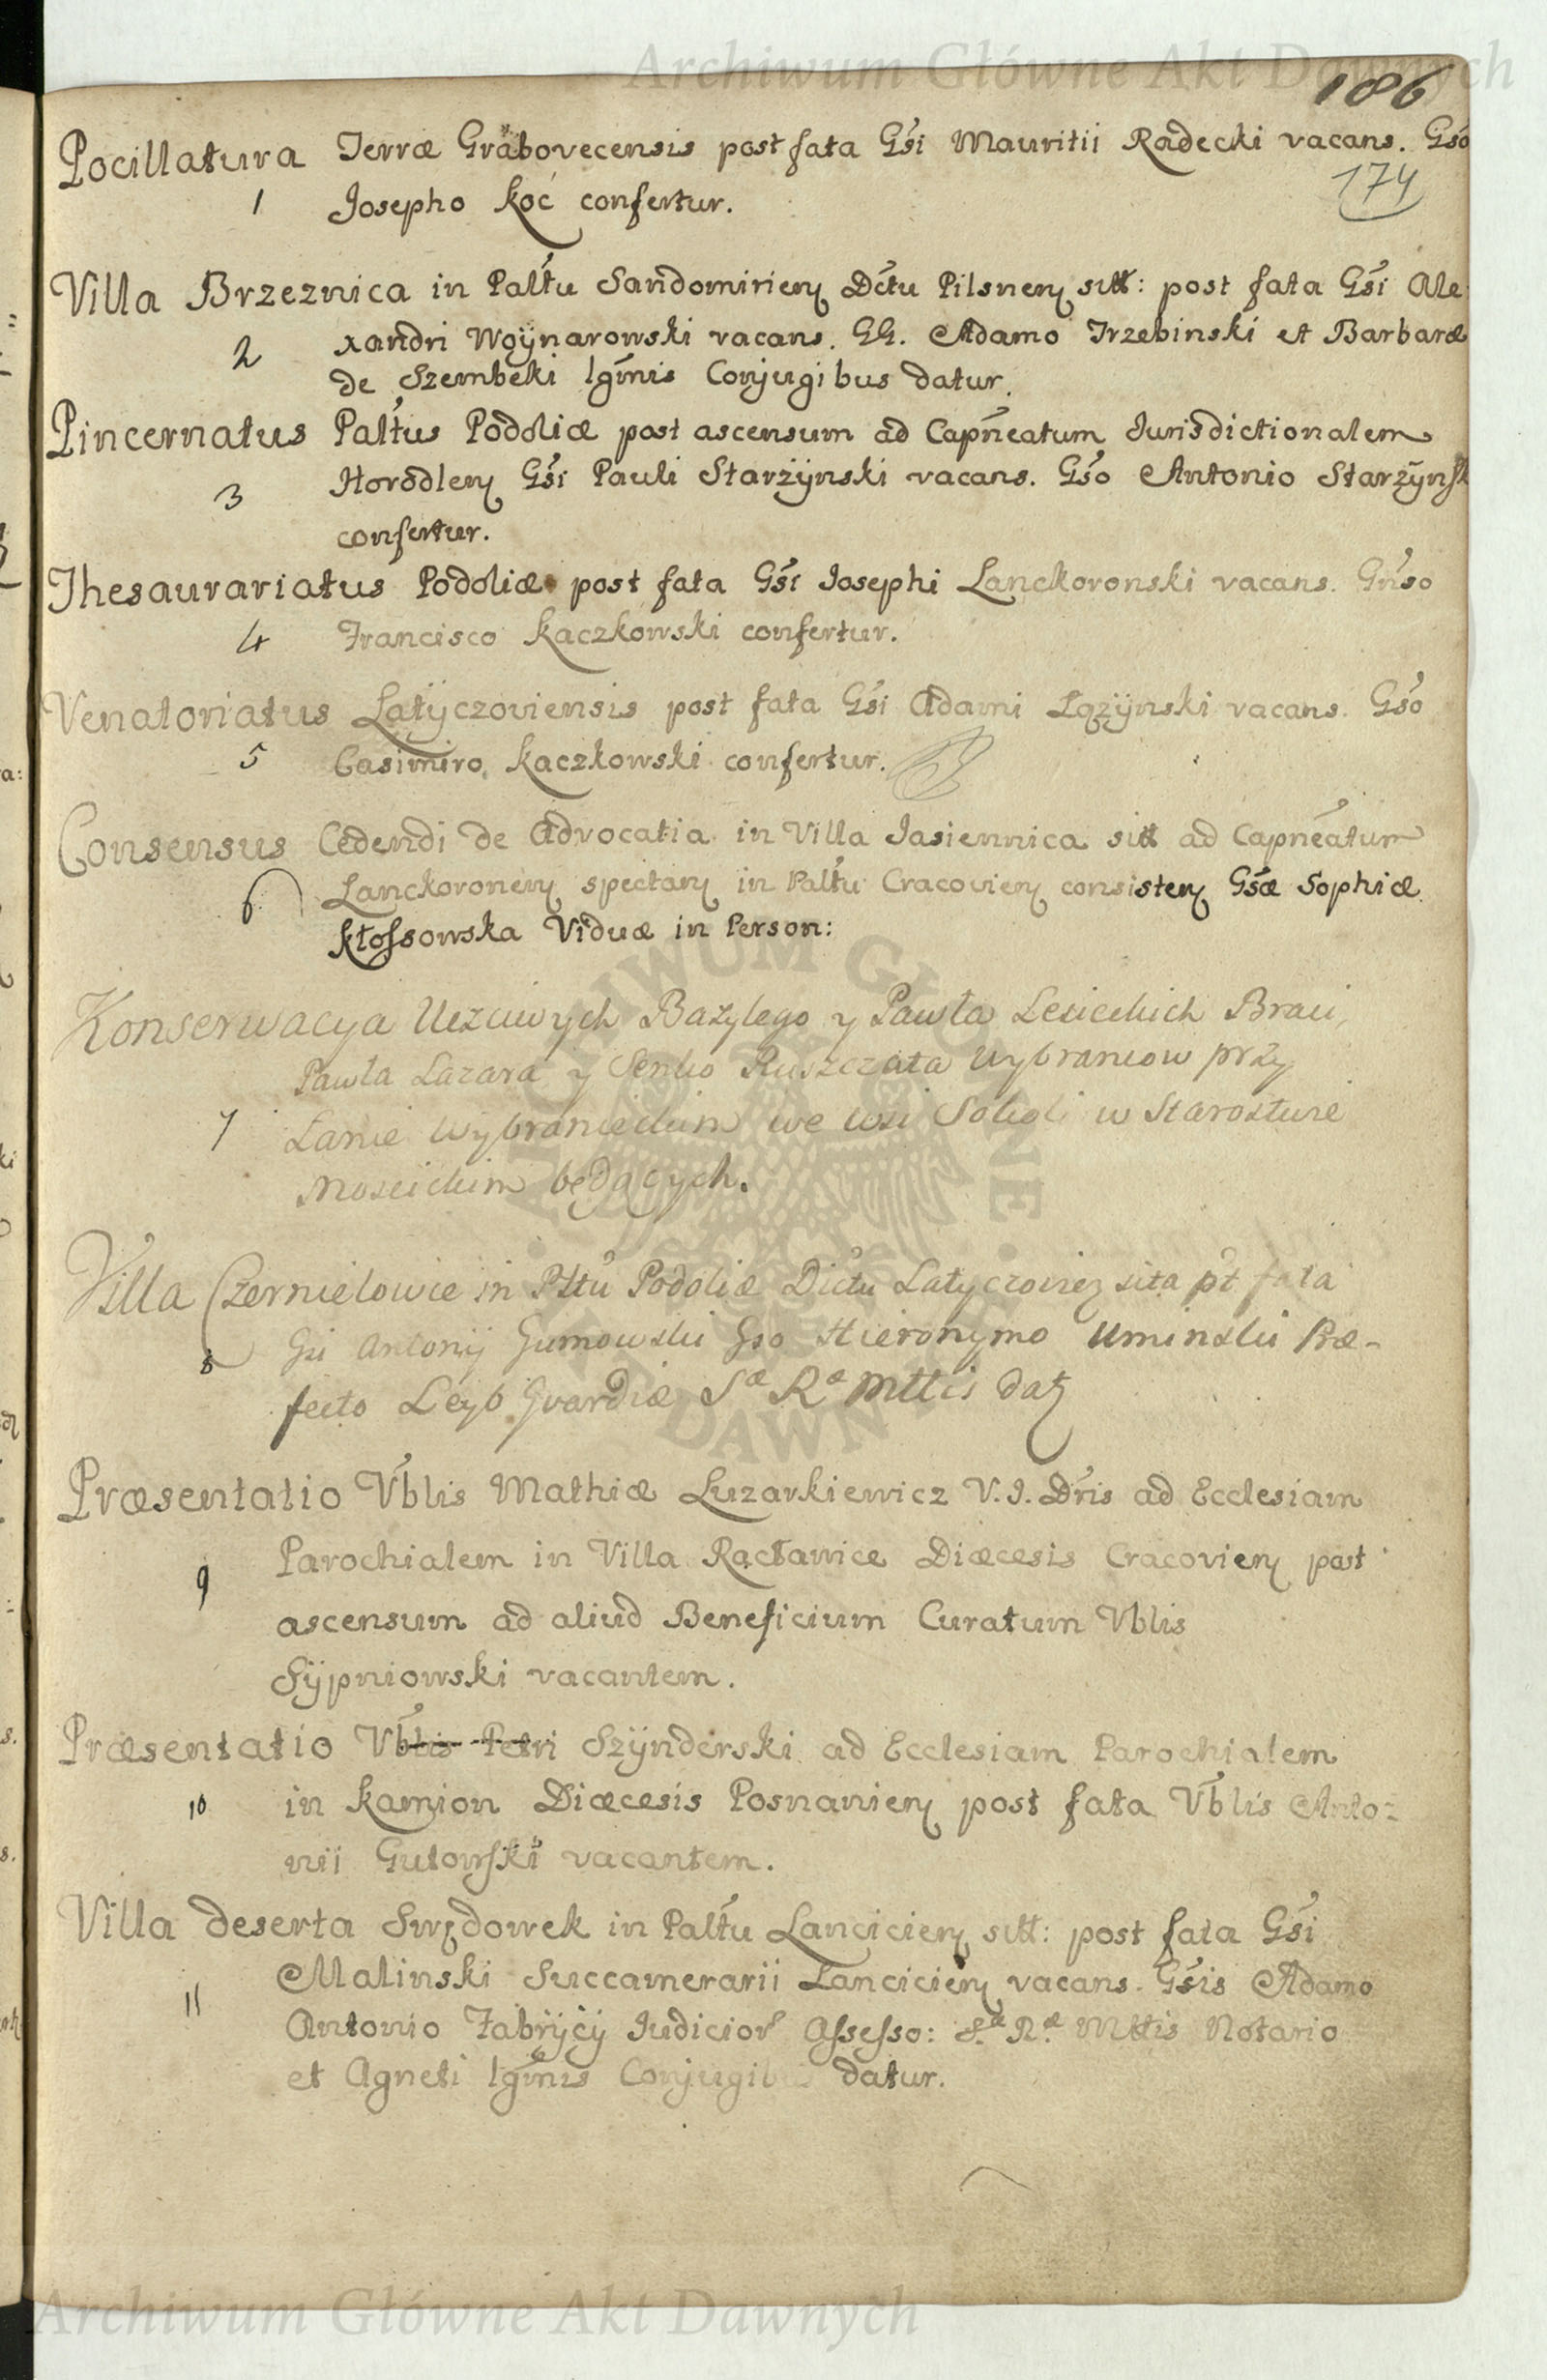 Archiwum Główne Akt Dawnych
186
Pocillatura Terræ Grabovecensis post fata Gsi Mauritii Radecki vacans. Gso
174
1 Josepho Koć confertur.
Villa Brzeznica in Paltu Sandomirien Dctu Pilsnen sitt: post fata Gsi Ale
2 xandri Woÿnarowski vacans. GG. Adamo Trzebinski et Barbaræ
de Szembeki lgmis Conjugibus datur.
Pincernatus Paltus Podoliæ post ascensum ad Capneatum Jurisdictionalem
3 Horodlen Gsi Pauli Starzÿnski vacans. Gso Antonio Starzÿnsk
confertur.
Thesaurariatus Podoliæ post fata Gsi Josephi Lanckoronski vacans. Gnso
4 Francisco Kaczkowski confertur.
Venatoriatus Latÿczoviensis post fata Gsi Adami Lązÿnski vacans. Gso
5 Casimiro Kaczkowski confertur.
Consensus Cedendi de Advocatia in Villa Jasiennica sitt ad Capneatum
6 Lanckoronen spectan in Paltu Cracovien consisten Gsæ Sophiæ
Kłossowska Viduæ in Person:
Konserwacya Uczciwych Bazylego y Pawła Lesieckich Braci,
Pawła Lazara y Senko Ruszczata Wybrancow przy
7 Lanie Wybranieckim we wsi Sokoli w Starostwie
Moscickim będących.
Villa Czernielowie in Pltu Podoliæ Dictu Latyczovien sita pt fata
8 Gsi Antonij Gumowski Gso Hieronymo Uminski Præ-
fecto Leyb Gvardiæ Sæ Ræ Mttis dat
Præsentatio Vblis Mathiæ Luzarkiewicz V.J. Dris ad Ecclesiam
9 Parochialem in Villa Racławice Diæcesis Cracovien post
ascensum ad aliud Beneficium Curatum Vblis
Sÿpniowski vacantem.
Præsentatio Vblis Petri Szÿnderski ad Ecclesiam Parochialem
10 in Kamion Diæcesis Posnanien post fata Vblis Anto=
nii Gutowski vacantem.
Villa deserta Swędowek in Paltu Lancicien sitt: post fata Gsi
11 Malinski Succamerarii Lancicien vacans. Gsis Adamo
Antonio Fabrÿcÿ Judicior Assesso: Sæ Ræ Mttis Notario
et Agneti lgmis Conjugibus datur.
Archiwum Główne Akt Dawnych